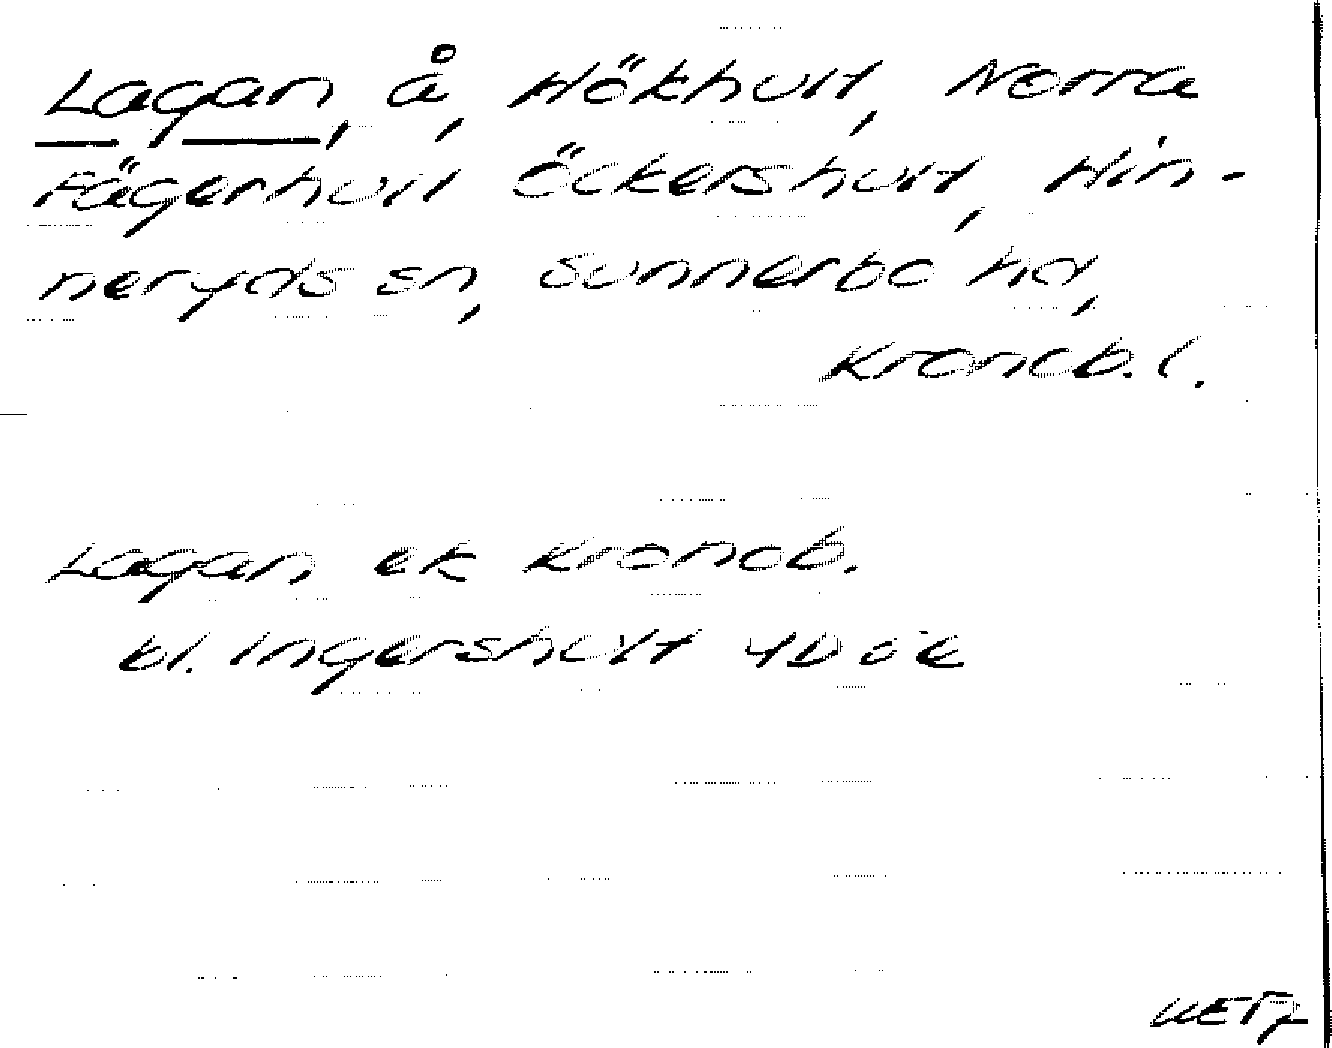 Lagan, å, Hökhult, Norra
Fägerhult Öckershult, Hin-
neryds sn, Sunnerbo hd,
Kronob. l.
Lagan ek Kronob.
bl. Ingershult 4D ök